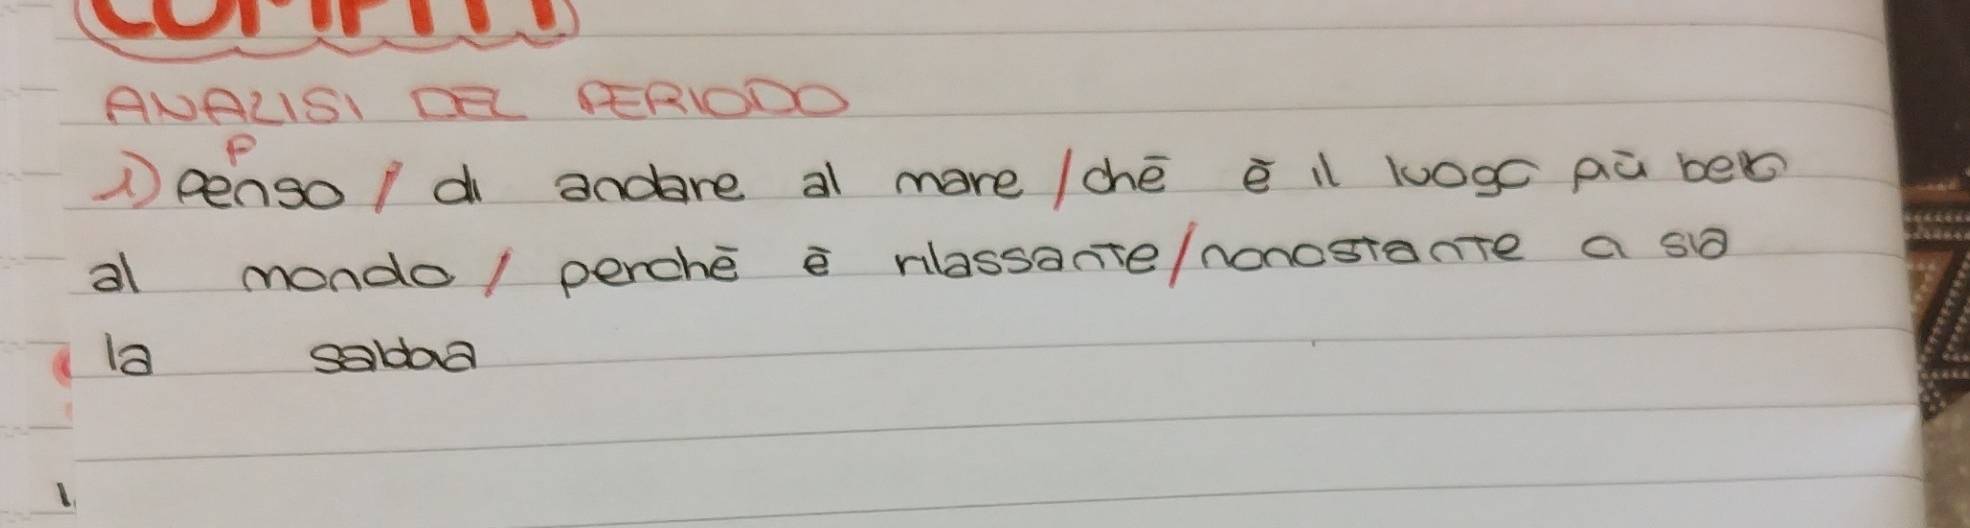 COMPITI
ANALISI DEL PERIODO
P
1) penso / di andare al mare / chē ē il luogo più bello
al mondo / perchē ē rilassante / nonostante ci sia
la sabbia